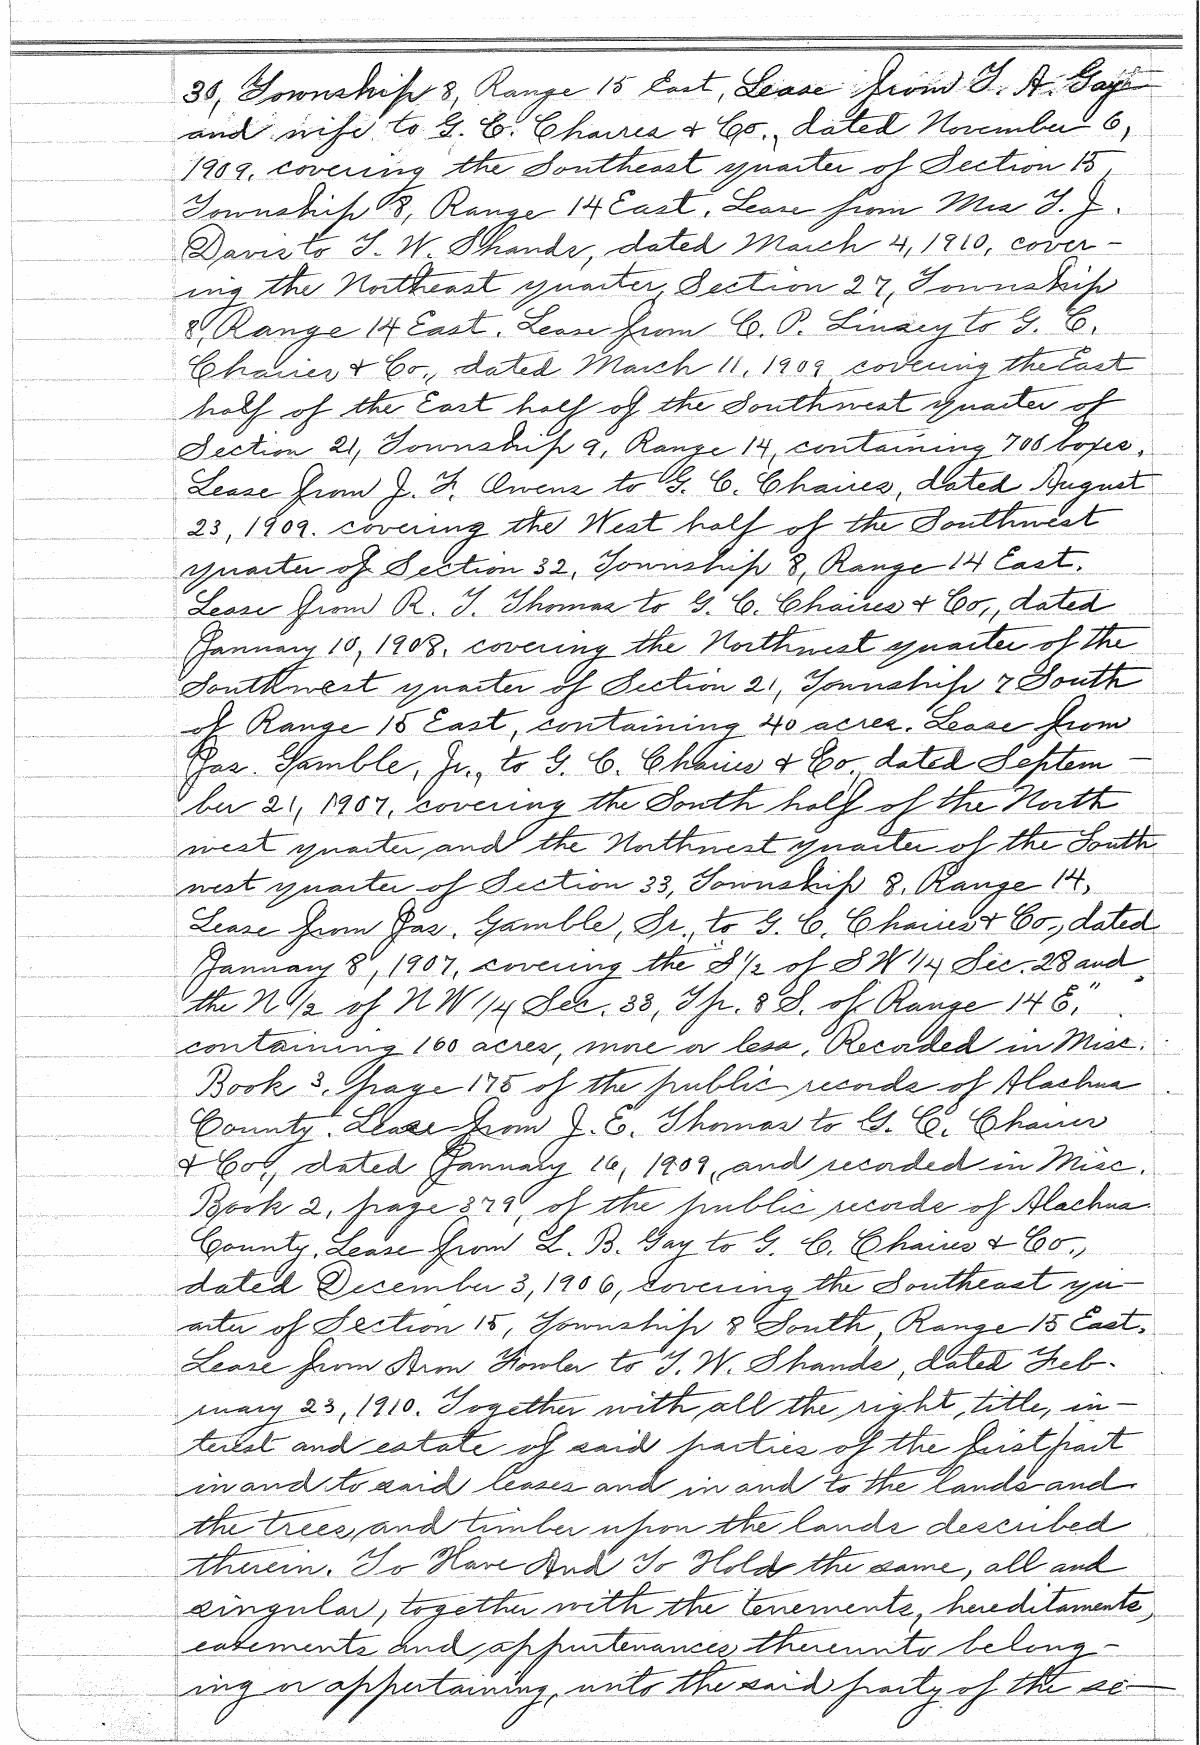 30, Township 8, Range 15 East, Lease from T. A. Gay
and wife to G. C. Chaires & Co., dated November 6,
1909, covering the Southeast quarter of Section 15,
Township 8, Range 14 East. Lease from Mrs T. J.
Davis to T. W. Shands, dated March 4, 1910, cover-
ing the Northeast quarter, Section 27, Township
8, Range 14 East. Lease from C. P. Linsey to G. C.
Chaires & Co., dated March 11, 1909, covering the East
half of the East half of the Southwest quarter of
Section 21, Township 9, Range 14, containing 700 boxes.
Lease from J. F. Owens to G. C. Chaires, dated August
23, 1909. covering the West half of the Southwest
quarter of Section 32, Township 8, Range 14 East.
Lease from R. T. Thomas to G. C. Chaires & Co., dated
January 10, 1908, covering the Northwest quarter of the
Southwest quarter of Section 21, Township 7 South
of Range 15 East, containing 40 acres. Lease from
Jas. Gamble, Jr., to G. C. Chaires & Co., dated Septem-
ber 21, 1907, covering the South half of the North
west quarter and the Northwest quarter of the South
west quarter of Section 33, Township 8, Range 14,
Lease from Jas. Gamble, Sr., to G. C. Chaires & Co., dated
January 8, 1907, covering the "S 1/2 of SW 1/4 Sec. 28 and
the N 1/2 of NW 1/4 Sec. 33, Tp. 8 S. of Range 14 E."
containing 160 acres, more or less. Recorded in Misc.
Book 3, page 175 of the public records of Alachua
County. Lease from J. E. Thomas to G. C. Chaires
& Co., dated January 16, 1909, and recorded in Misc.
Book 2, page 379, of the public records of Alachua
County. Lease from L. B. Gay to G. C. Chaires & Co.,
dated December 3, 1906, covering the Southeast qu-
arter of Section 15, Township 8 South, Range 15 East.
Lease from Aron Fowler to T. W. Shands, dated Feb-
ruary 23, 1910. Together with all the right, title, in-
terest and estate of said parties of the first part
in and to said leases and in and to the lands and
the trees and timber upon the lands described
therein. To Have And To Hold the same, all and
singular, together with the tenements, hereditaments,
easements and appurtenances thereunto belong-
ing or appertaining, unto the said party of the se-